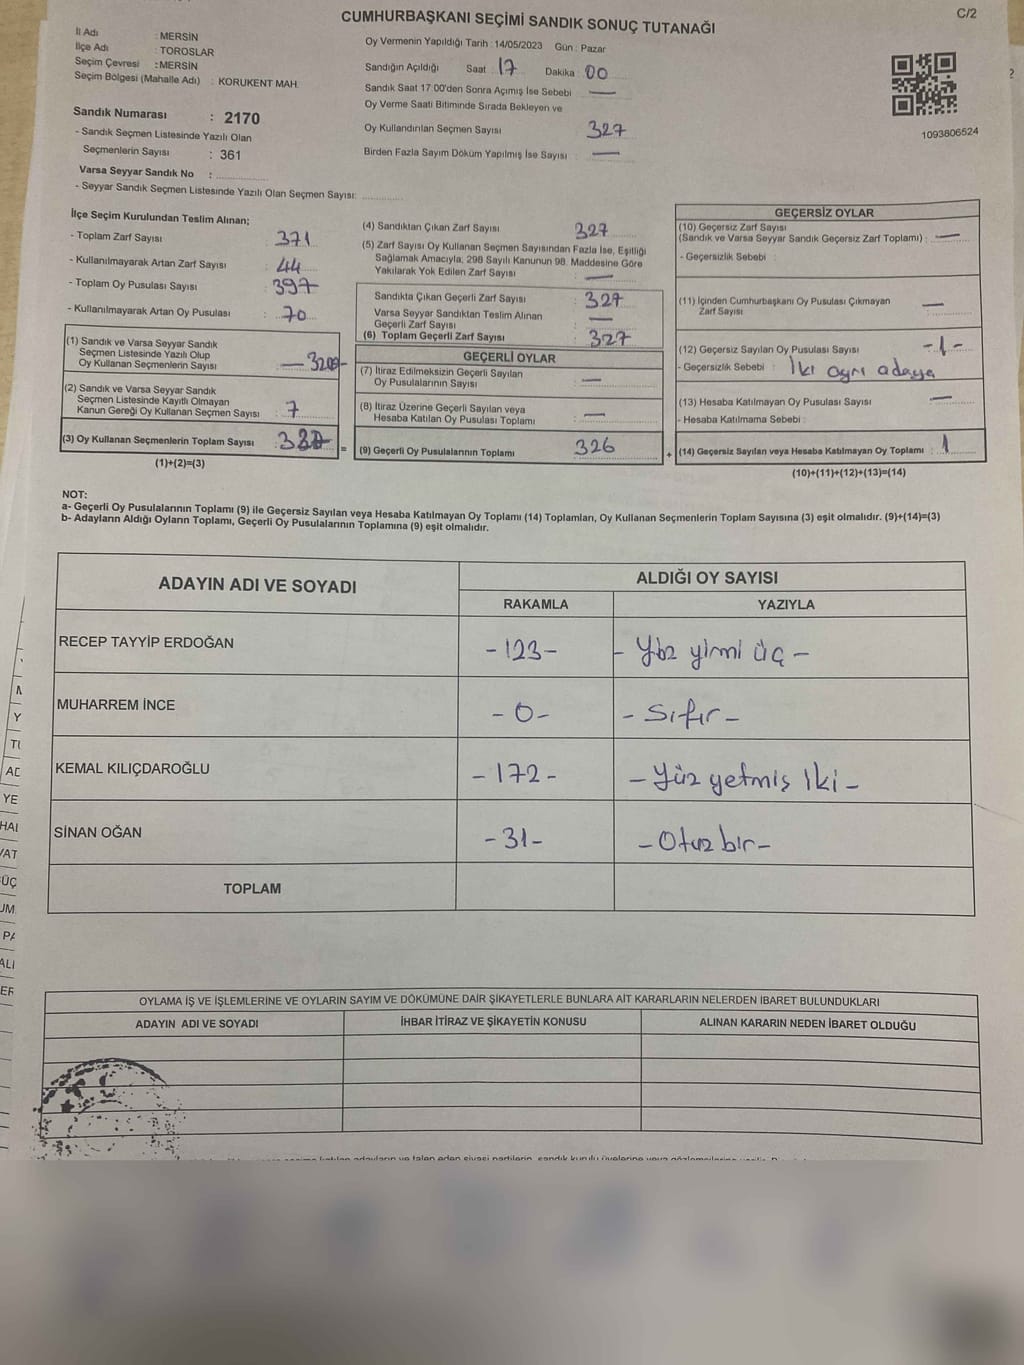 C/2
CUMHURBAŞKANI SEÇİMİ SANDIK SONUÇ TUTANAĞI
İl Adı : MERSİN
İlçe Adı : TOROSLAR
Seçim Çevresi : MERSİN
Seçim Bölgesi (Mahalle Adı) : KORUKENT MAH.
Sandık Numarası : 2170
- Sandık Seçmen Listesinde Yazılı Olan
Seçmenlerin Sayısı : 361
Varsa Seyyar Sandık No :
- Seyyar Sandık Seçmen Listesinde Yazılı Olan Seçmen Sayısı:
Oy Vermenin Yapıldığı Tarih : 14/05/2023 Gün : Pazar
Sandığın Açıldığı Saat : 17 Dakika : 00
Sandık Saat 17:00'den Sonra Açımış İse Sebebi : —
Oy Verme Saati Bitiminde Sırada Bekleyen ve
Oy Kullandırılan Seçmen Sayısı : 327
Birden Fazla Sayım Döküm Yapılmış İse Sayısı : —
1093806524
İlçe Seçim Kurulundan Teslim Alınan;
- Toplam Zarf Sayısı : 371
- Kullanılmayarak Artan Zarf Sayısı : 44
- Toplam Oy Pusulası Sayısı : 397
- Kullanılmayarak Artan Oy Pusulası : 70
(1) Sandık ve Varsa Seyyar Sandık
Seçmen Listesinde Yazılı Olup
Oy Kullanan Seçmenlerin Sayısı :
(2) Sandık ve Varsa Seyyar Sandık
Seçmen Listesinde Kayıtlı Olmayan
Kanun Gereği Oy Kullanan Seçmen Sayısı : 7
(3) Oy Kullanan Seçmenlerin Toplam Sayısı :
(1)+(2)=(3)
(4) Sandıktan Çıkan Zarf Sayısı : 327
(5) Zarf Sayısı Oy Kullanan Seçmen Sayısından Fazla İse, Eşitliği
Sağlamak Amacıyla, 298 Sayılı Kanunun 98. Maddesine Göre
Yakılarak Yok Edilen Zarf Sayısı : —
Sandıkta Çıkan Geçerli Zarf Sayısı : 327
Varsa Seyyar Sandıktan Teslim Alınan
Geçerli Zarf Sayısı : —
(6) Toplam Geçerli Zarf Sayısı : 327
GEÇERLİ OYLAR
(7) İtiraz Edilmeksizin Geçerli Sayılan
Oy Pusulalarının Sayısı : —
(8) İtiraz Üzerine Geçerli Sayılan veya
Hesaba Katılan Oy Pusulası Toplamı : —
= (9) Geçerli Oy Pusulalarının Toplamı : 326
GEÇERSİZ OYLAR
(10) Geçersiz Zarf Sayısı
(Sandık ve Varsa Seyyar Sandık Geçersiz Zarf Toplamı) : —
- Geçersizlik Sebebi :
(11) İçinden Cumhurbaşkanı Oy Pusulası Çıkmayan
Zarf Sayısı : —
(12) Geçersiz Sayılan Oy Pusulası Sayısı : -1-
- Geçersizlik Sebebi : İki ayrı adaya
(13) Hesaba Katılmayan Oy Pusulası Sayısı : —
- Hesaba Katılmama Sebebi :
+ (14) Geçersiz Sayılan veya Hesaba Katılmayan Oy Toplamı : 1
(10)+(11)+(12)+(13)=(14)
NOT:
a- Geçerli Oy Pusulalarının Toplamı (9) ile Geçersiz Sayılan veya Hesaba Katılmayan Oy Toplamı (14) Toplamları, Oy Kullanan Seçmenlerin Toplam Sayısına (3) eşit olmalıdır. (9)+(14)=(3)
b- Adayların Aldığı Oyların Toplamı, Geçerli Oy Pusulalarının Toplamına (9) eşit olmalıdır.
ADAYIN ADI VE SOYADI ALDIĞI OY SAYISI
RAKAMLA YAZIYLA
RECEP TAYYİP ERDOĞAN -123- - Yüz yirmi üç -
MUHARREM İNCE -0- - Sıfır -
KEMAL KILIÇDAROĞLU -172- - Yüz yetmiş iki -
SİNAN OĞAN -31- - Otuz bir -
TOPLAM
OYLAMA İŞ VE İŞLEMLERİNE VE OYLARIN SAYIM VE DÖKÜMÜNE DAİR ŞİKAYETLERLE BUNLARA AİT KARARLARIN NELERDEN İBARET BULUNDUKLARI
ADAYIN ADI VE SOYADI İHBAR İTİRAZ VE ŞİKAYETİN KONUSU ALINAN KARARIN NEDEN İBARET OLDUĞU